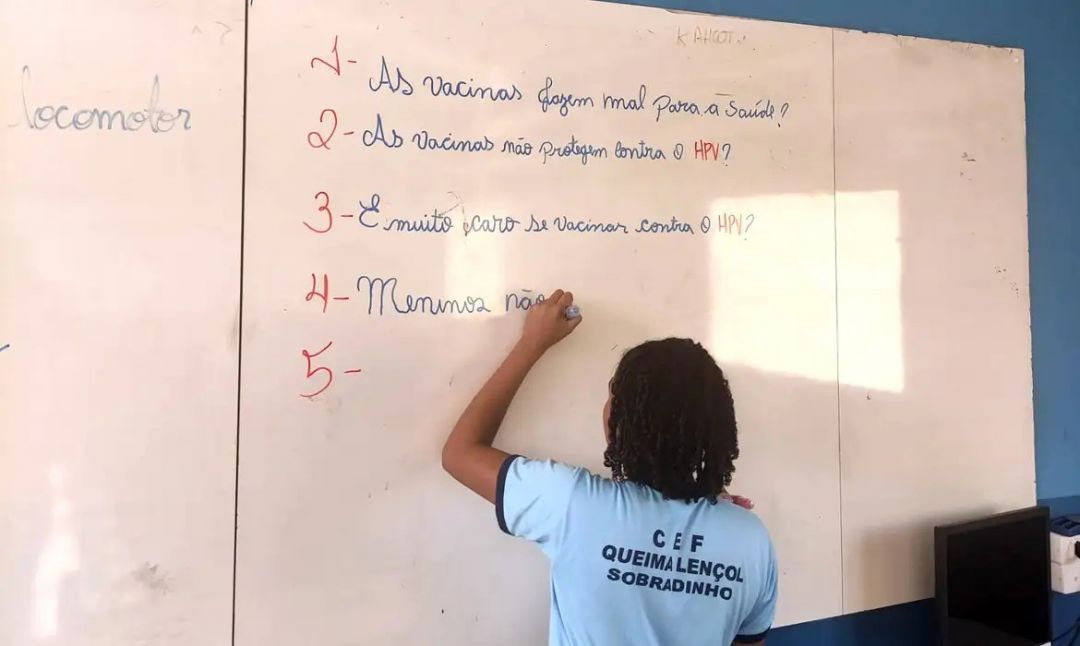 locomotor
KAHOOT
1- As vacinas fazem mal para a saúde?
2- As vacinas não protegem contra o HPV?
3- É muito caro se vacinar contra o HPV?
4- Meninos não
5-
C E F
QUEIMA LENÇOL
SOBRADINHO